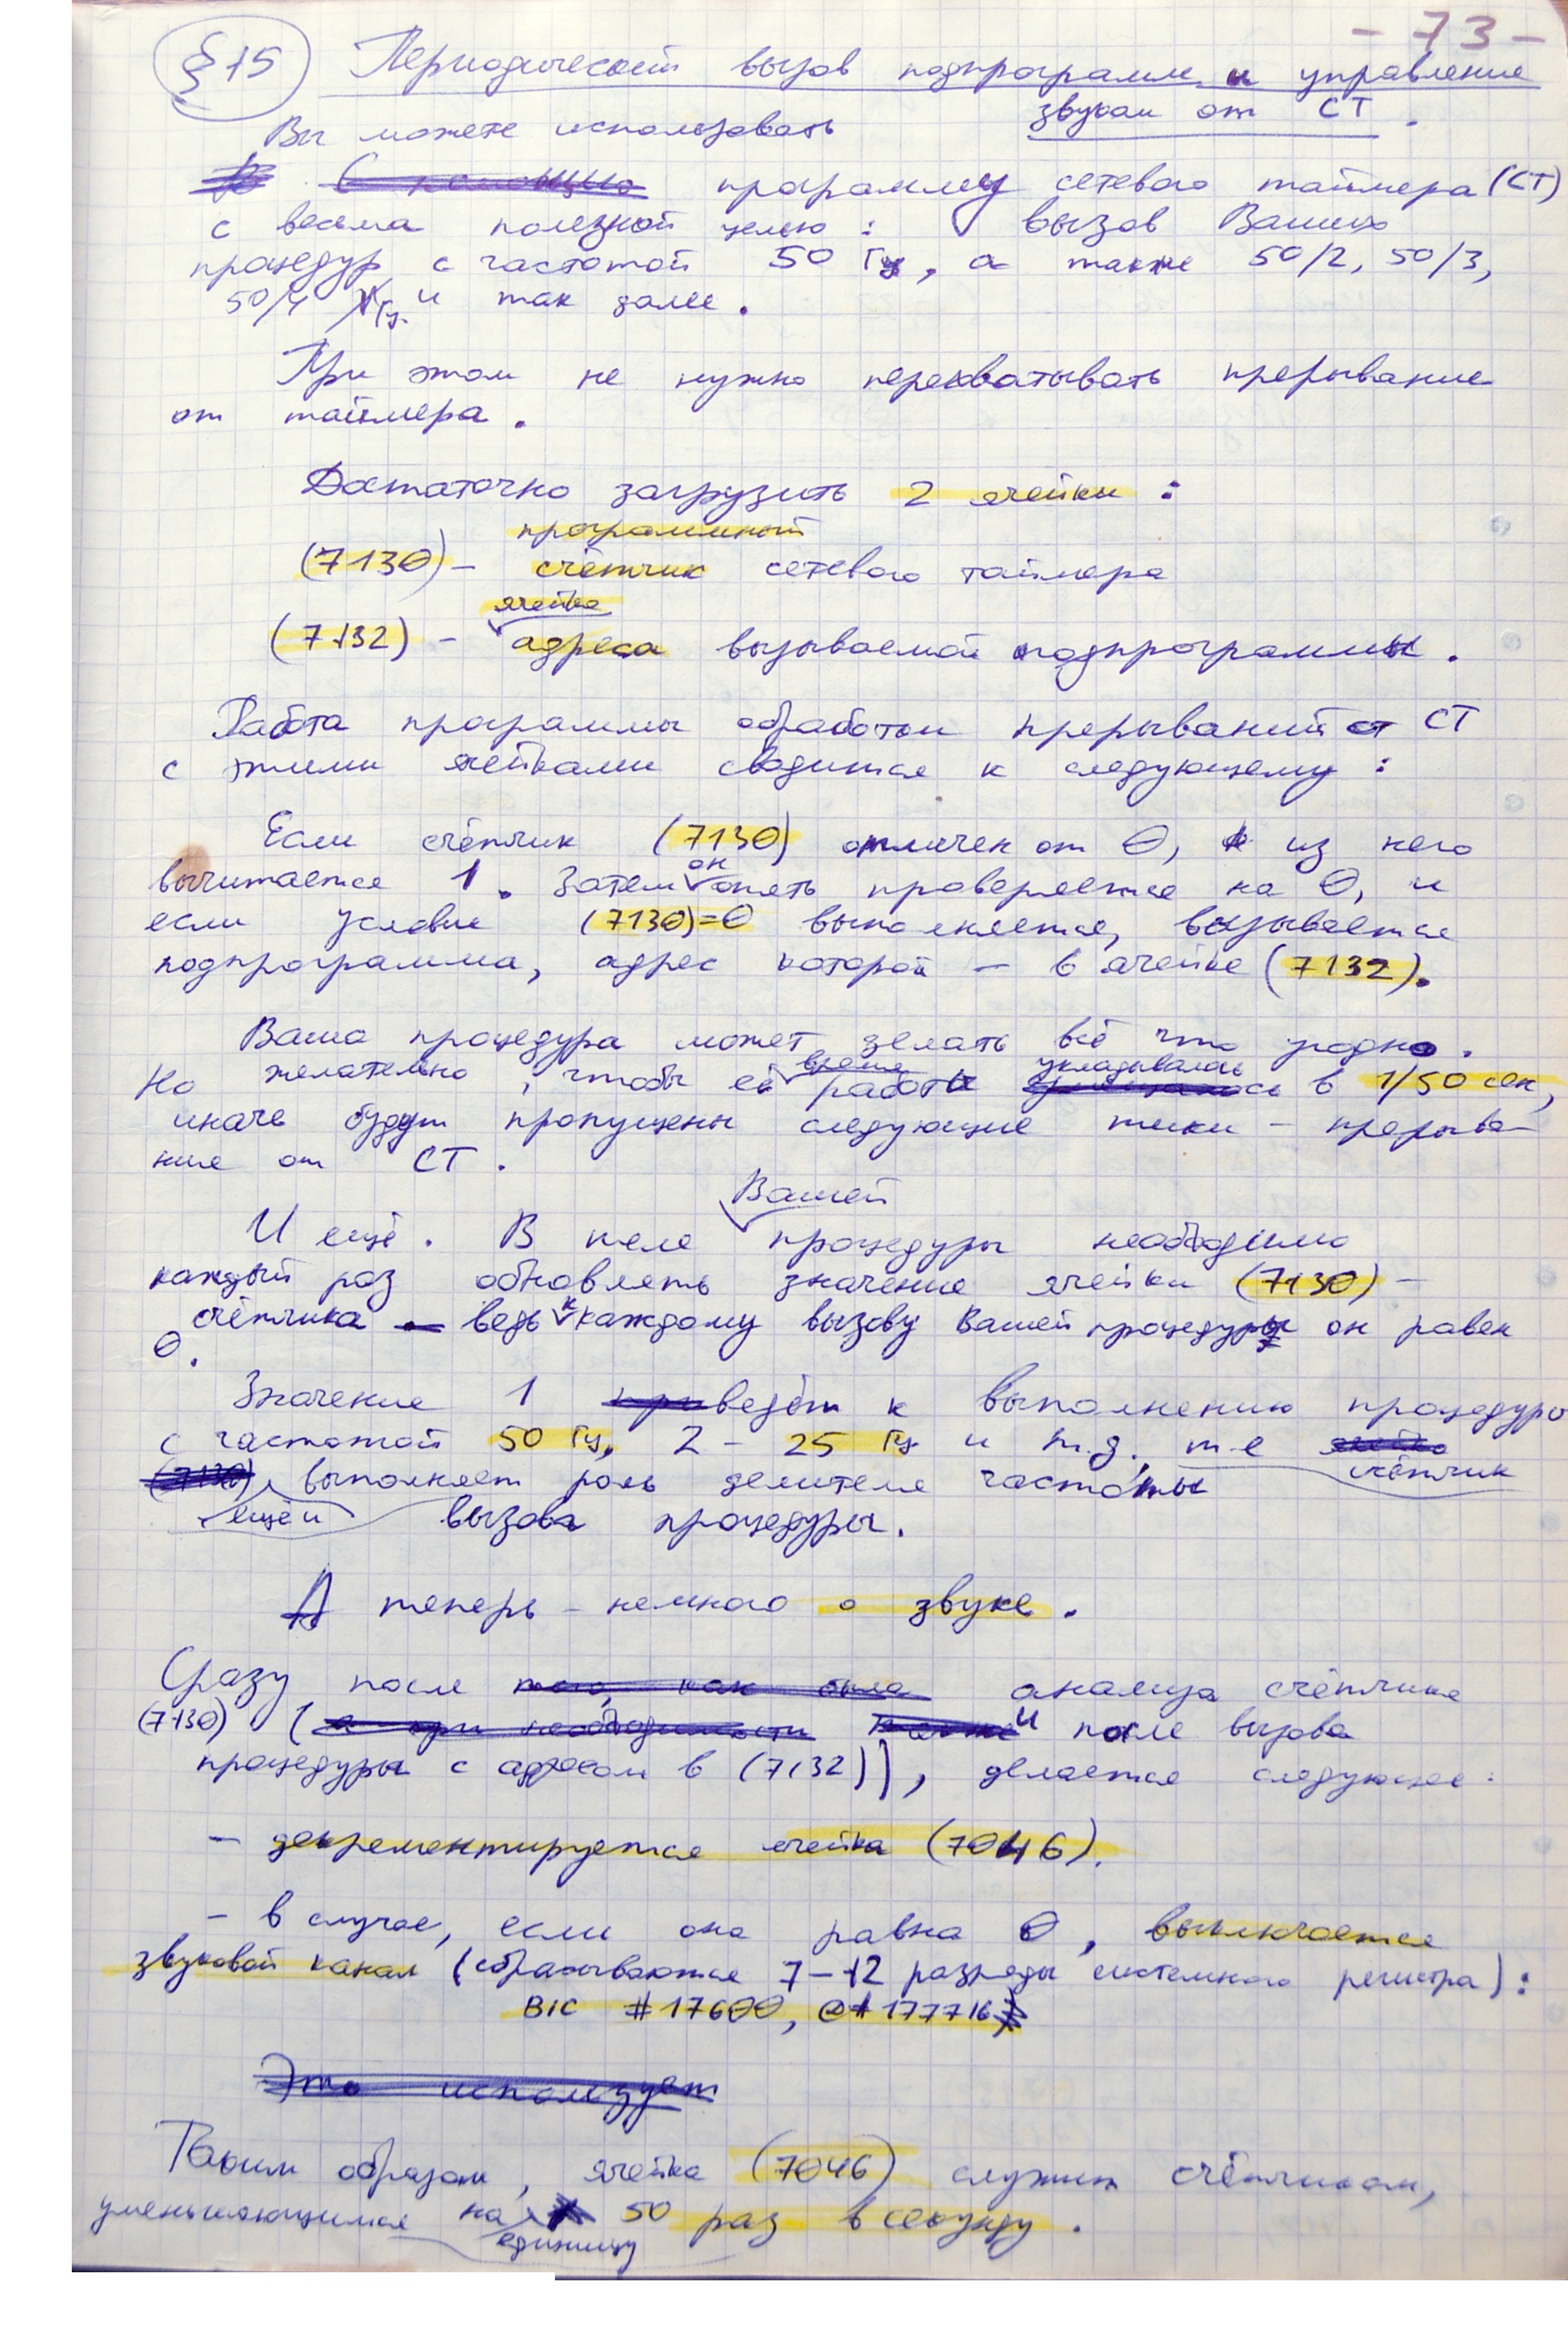 - 73 -
§15 Периодический вызов подпрограмм и управление
звуком от СТ.
Вы можете использовать
программу сетевого таймера (СТ)
с весьма полезной целью: вызов Ваших
процедур с частотой 50 Гц, а также 50/2, 50/3,
50/4 Гц и так далее.
При этом не нужно перехватывать прерывание
от таймера.
Достаточно загрузить 2 ячейки:
программный
(7130) - счётчик сетевого таймера
ячейка
(7132) - адреса вызываемой подпрограммы.
Работа программы обработки прерываний от СТ
с этими ячейками сводится к следующему:
Если счётчик (7130) отличен от 0, из него
вычитается 1. Затем он опять проверяется на 0, и
если условие (7130)=0 выполняется, вызывается
подпрограмма, адрес которой - в ячейке (7132).
Ваша процедура может делать всё что угодно.
Но желательно, чтобы её время работы укладывалось в 1/50 сек,
иначе будут пропущены следующие тики - прерыва-
ние от СТ.
И ещё. В теле Вашей процедуры необходимо
каждый раз обновлять значение ячейки (7130) -
счётчика - ведь к каждому вызову Вашей процедуры он равен
0.
Значение 1 ведёт к выполнению процедуры
с частотой 50 Гц, 2 - 25 Гц и т.д., т.е счётчик
ещё и выполняет роль делителя частоты
вызова процедуры.
А теперь - немного о звуке.
Сразу после анализа счётчика
(7130) (и после вызова
процедуры с адресом в (7132)), делается следующее:
- декрементируется ячейка (7046).
- в случае, если она равна 0, выключается
звуковой канал (сбрасываются 7-12 разряды системного регистра):
BIC #17600, @#177716
Это использует
Таким образом, ячейка (7046) служит счётчиком,
уменьшающимся на единицу 50 раз в секунду.